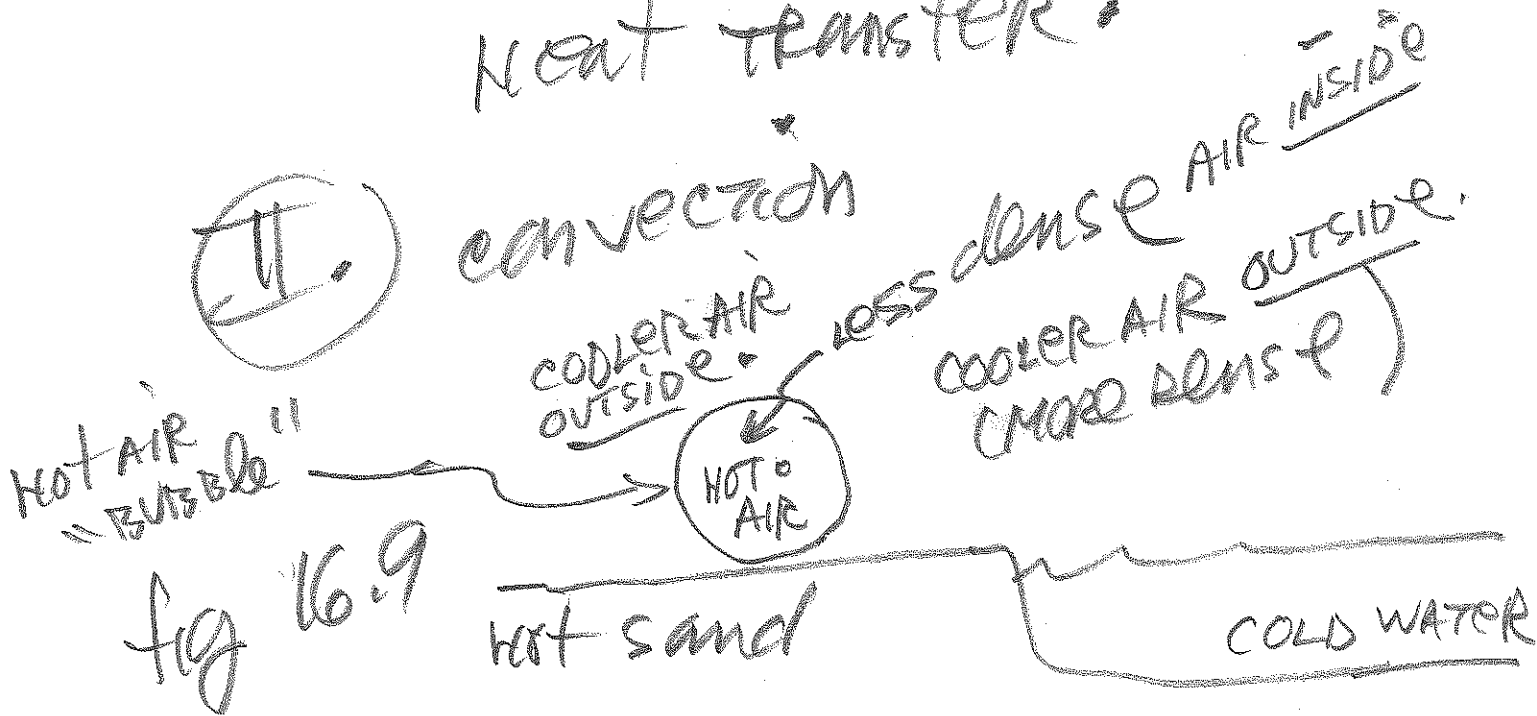 Heat TRansfeR.
II. convection
Less dense AIR INSIDe
COOLER AIR OUTSIDe.
(MORe Dense)
COOLER AIR
OUTSIDe.
Hot AIR
"BUBBle"
HOT
AIR
fig 16.9
hot sand
COLD WATeR